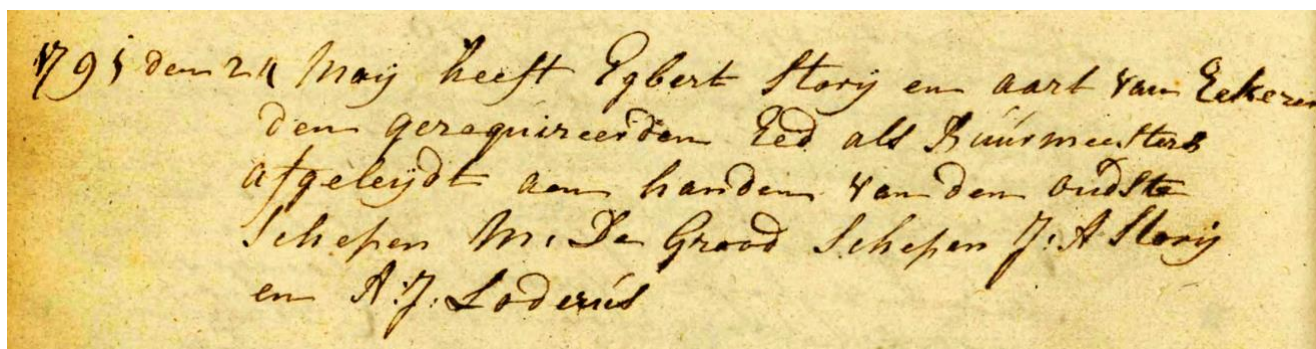 1795 den 24 Maij heeft Egbert Storij en aart van Eekeren
den gerequireerden Eed als Buúrmeesters
afgeleijdt aen handen van den oudste
Schepen M: De Grood Schepen J: A Storij
en A: J: Loderús